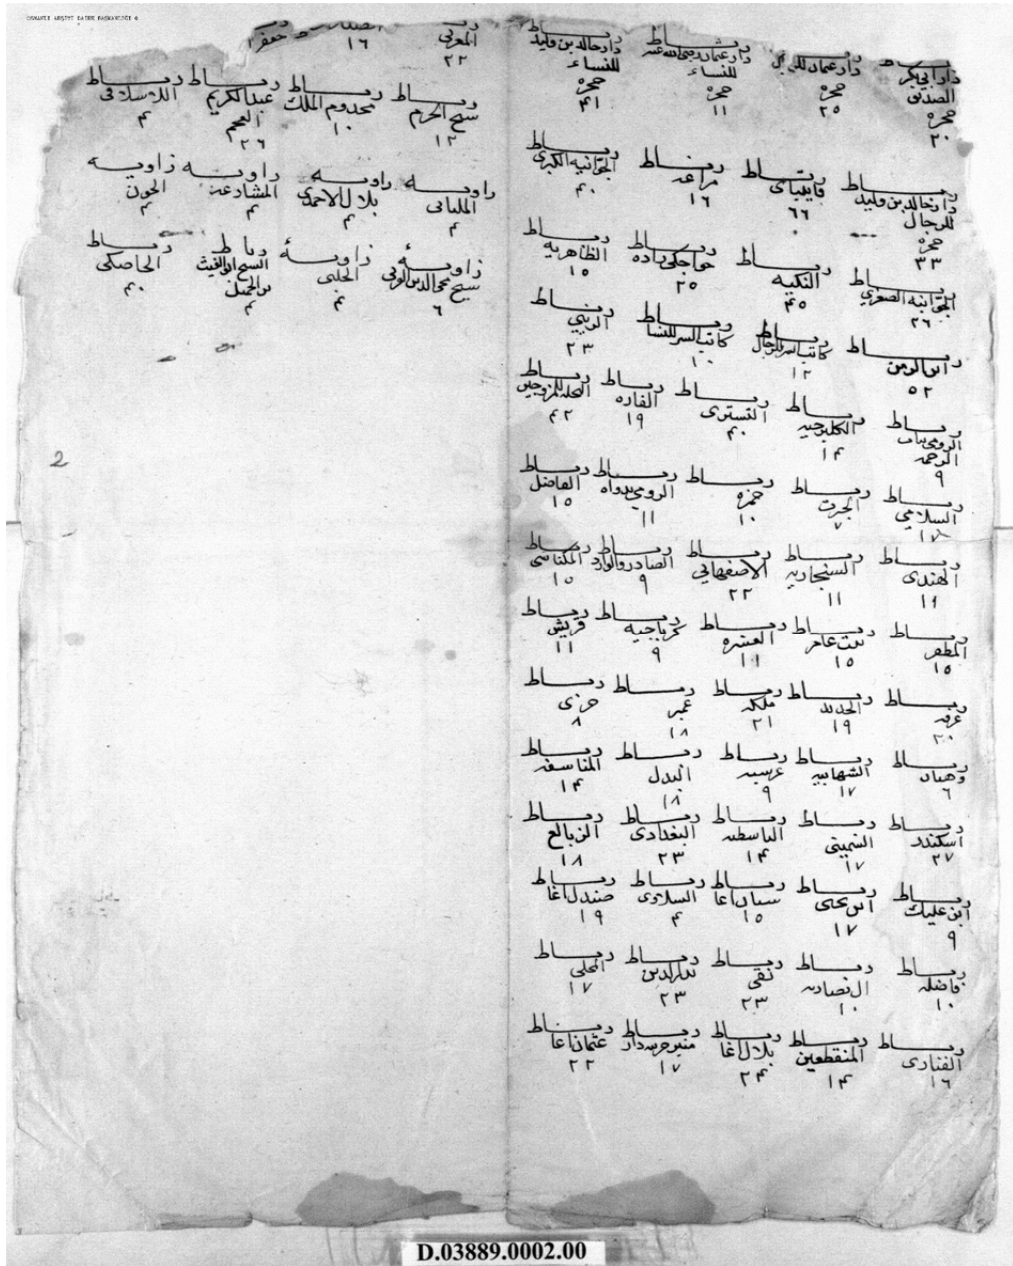 رباط
دار ابي بكر
الصديق
حجره
٢٠
رباط
دار عثمان للرجال
حجره
٢٥
رباط
دار عثمان رضى الله عنه
للنساء
حجره
١١
رباط
دار خالد بن وليد
للنساء
حجره
٤١
رباط
دار خالد بن وليد
للرجال
حجره
٣٣
رباط
قايتباى
٦٦
رباط
مراغه
١٦
رباط
الجبانيه الكبرى
٤٠
رباط
الصغرى
٢٦
رباط
التكيه
٤٥
رباط
خواجكى زاده
٢٥
رباط
الظاهريه
١٥
رباط
ابن الزمن
٥٢
رباط
كاتب السر للرجال
١٢
رباط
كاتب السر للنسا
١٠
رباط
٢٣
رباط
الرومى باب
الرحمه
٩
رباط
الكلبرجيه
١٤
رباط
التسترى
٤٠
رباط
الفاره
١٩
رباط
النخله للمزوجين
٤٢
رباط
السلامي
١٧
رباط
الجبرت
٧
رباط
حمزه
١٠
رباط
الرومى
١١
رباط
الفاضل
١٥
رباط
الهندى
١١
رباط
السنجاريه
١١
رباط
الاصفهاني
٢٢
رباط
الصادر والوارد
٩
رباط
المكناسى
١٥
رباط
المظفر
١٥
رباط
بنت عامر
١٥
رباط
العشره
١١
رباط
كرباجيه
٩
رباط
قريش
١١
رباط
عرفه
٢٠
رباط
الجديد
١٩
رباط
ملكه
٢١
رباط
عمر
١٨
رباط
حزى
٨
رباط
وهبان
٦
رباط
الشهابيه
١٧
رباط
عريسه
٩
رباط
البدل
١٨
رباط
١٤
رباط
اسكندر
٢٧
رباط
الشمينى
١٧
رباط
الباسطيه
١٤
رباط
البغدادى
٢٣
رباط
الزبالع
١٨
رباط
ابن عليك
٩
رباط
ابن يحيى
١٧
رباط
سنان اغا
١٥
رباط
السلاوى
٤
رباط
صندل اغا
١٩
رباط
فاضله
١٠
رباط
١٠
رباط
تقى
٢٣
رباط
بدر الدين
٢٣
رباط
المحلى
١٧
رباط
الفنارى
١٦
رباط
المنقطعين
١٤
رباط
بلال اغا
٢٤
رباط
١٧
رباط
عثمان اغا
٢٢
رباط
المغربي
٢٢
جعفر
١٦
رباط
شيخ الحرم
١٢
رباط
مخدوم الملك
١٠
رباط
عبد الكريم
العجم
٢٦
رباط
٤
زاويه
٤
زاويه
بلال الاحمدى
٤
زاويه
المشادعه
٤
زاويه
الجون
٤
زاوية
شيخ محى الدين
٦
زاوية
الحلبى
٤
رباط
الشيخ ابو الغيث
بن الجميل
٤
رباط
الخاصكى
٤٠
2
D.03889.0002.00